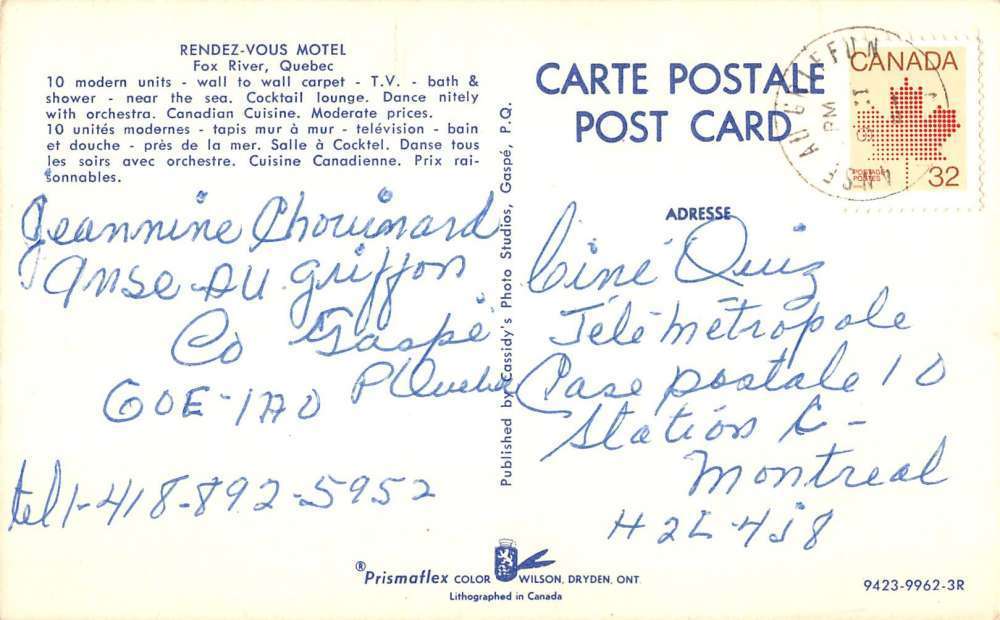 RENDEZ-VOUS MOTEL
Fox River, Quebec
10 modern units - wall to wall carpet - T.V. - bath &
shower - near the sea. Cocktail lounge. Dance nitely
with orchestra. Canadian Cuisine. Moderate prices.
10 unités modernes - tapis mur à mur - télévision - bain
et douche - près de la mer. Salle à Cocktel. Danse tous
les soirs avec orchestre. Cuisine Canadienne. Prix rai-
sonnables.
Jeannine Chouinard
Anse au griffon
Co Gaspé
P Quebec
G0E-1A0
tel 1-418-892-5952
Published by Cassidy's Photo Studios, Gaspé, P.Q.
CARTE POSTALE
POST CARD
CANADA
POSTAGE
POSTES
32
PM
ADRESSE
Ciné Quiz
Télé Métropole
Case postale 10
Station C-
Montreal
H2L-4J8
®Prismaflex COLOR WILSON, DRYDEN, ONT.
Lithographed in Canada
9423-9962-3R